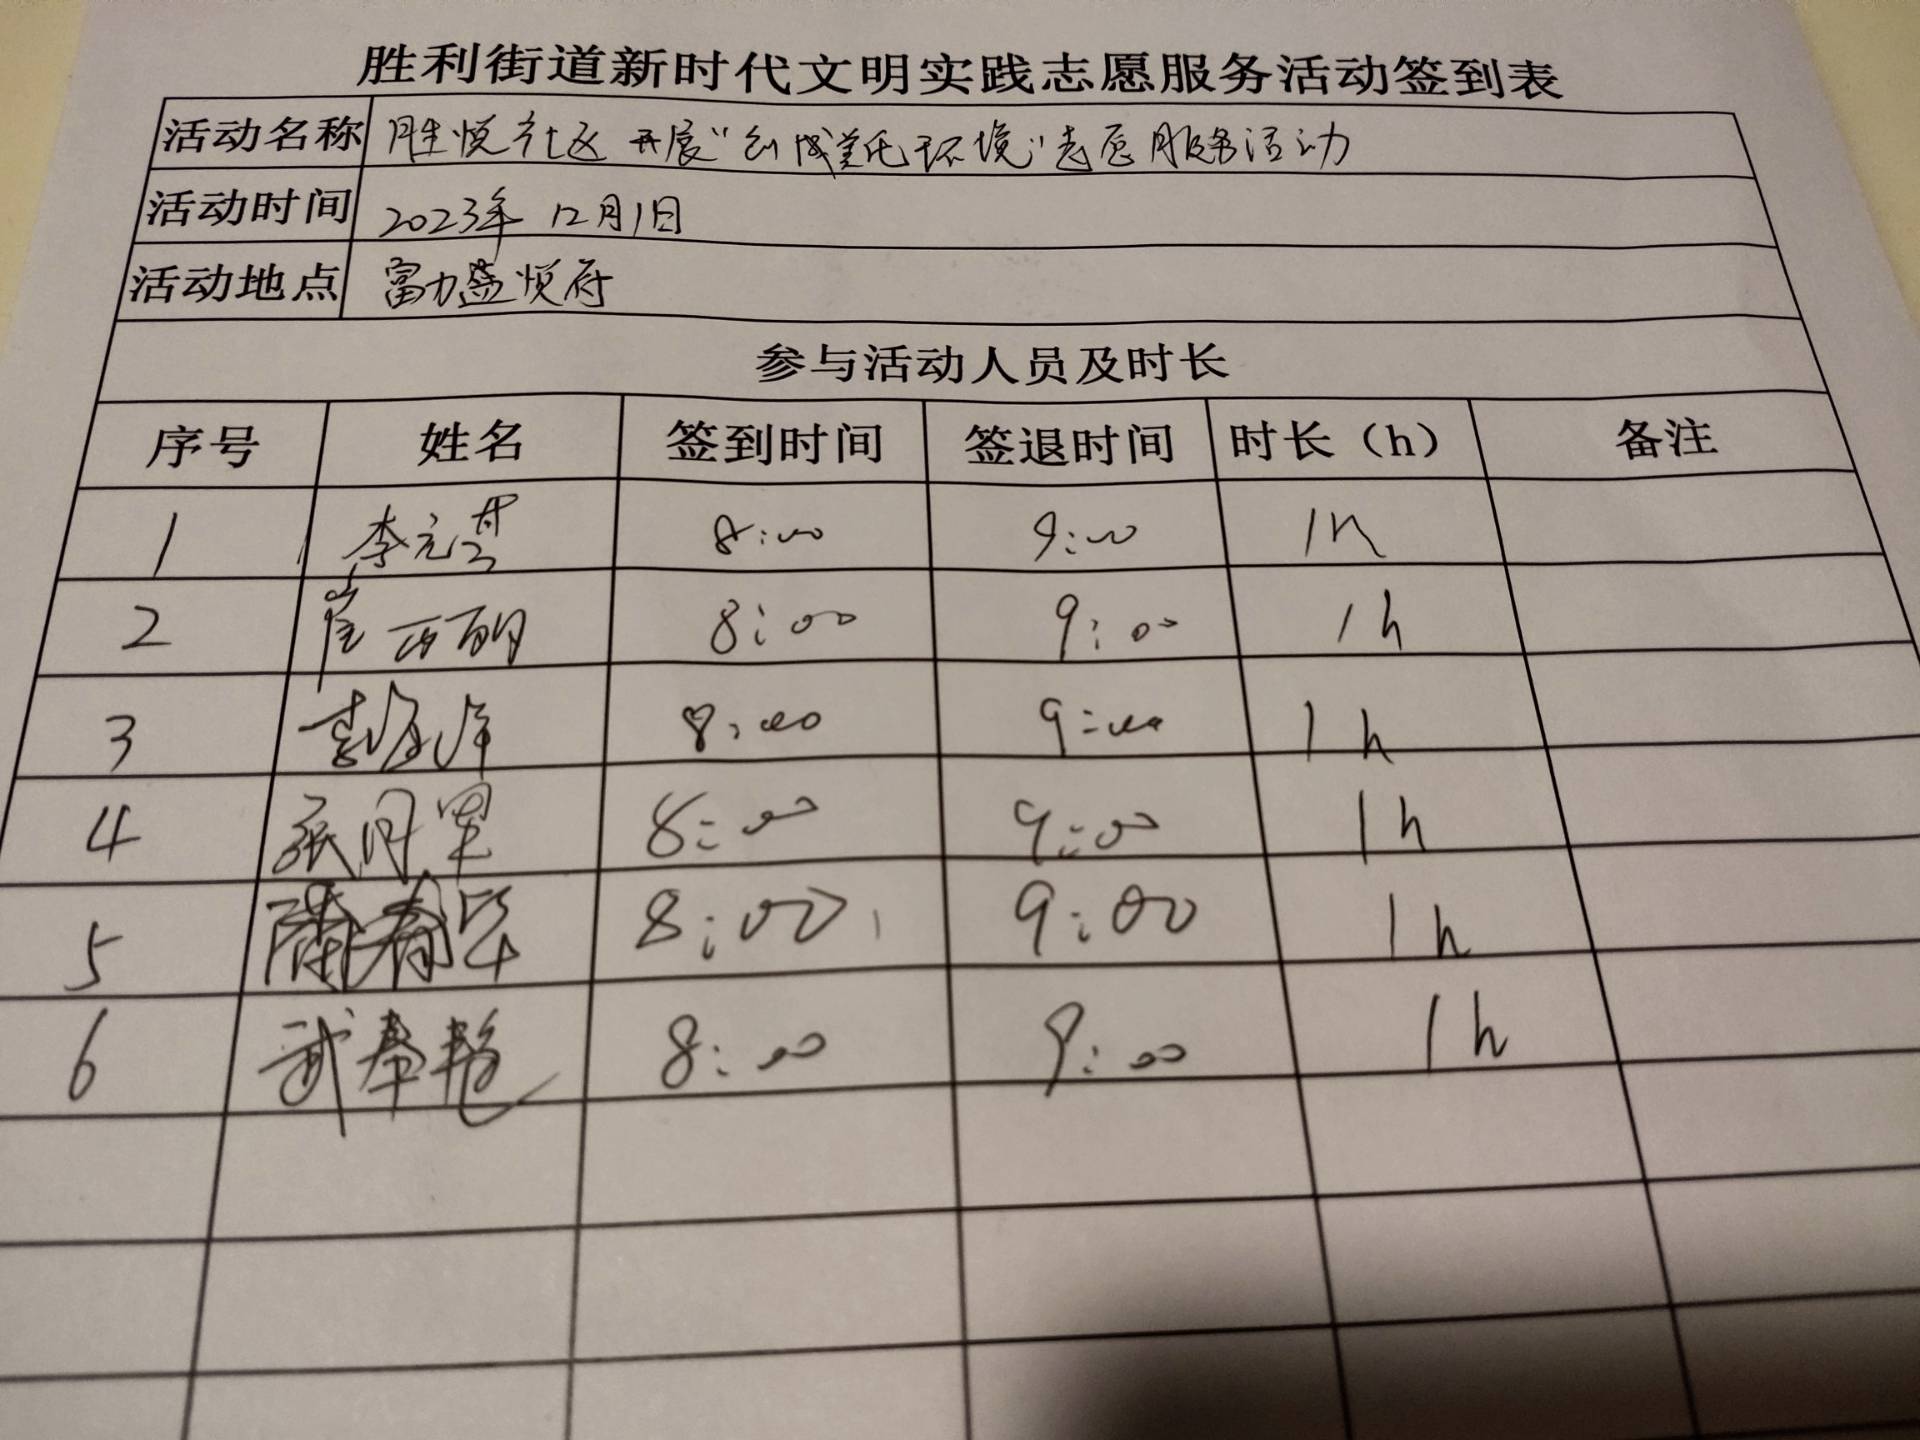 胜利街道新时代文明实践志愿服务活动签到表
活动名称 胜悦社区开展“创城美化环境”志愿服务活动
活动时间 2023年12月1日
活动地点 富力盛悦府
参与活动人员及时长
序号 姓名 签到时间 签退时间 时长（h） 备注
1 李元 8:00 9:00 1h
2 崔西丽 8:00 9:00 1h
3 8:00 9:00 1h
4 张月 8:00 9:00 1h
5 8:00 9:00 1h
6 武春艳 8:00 9:00 1h